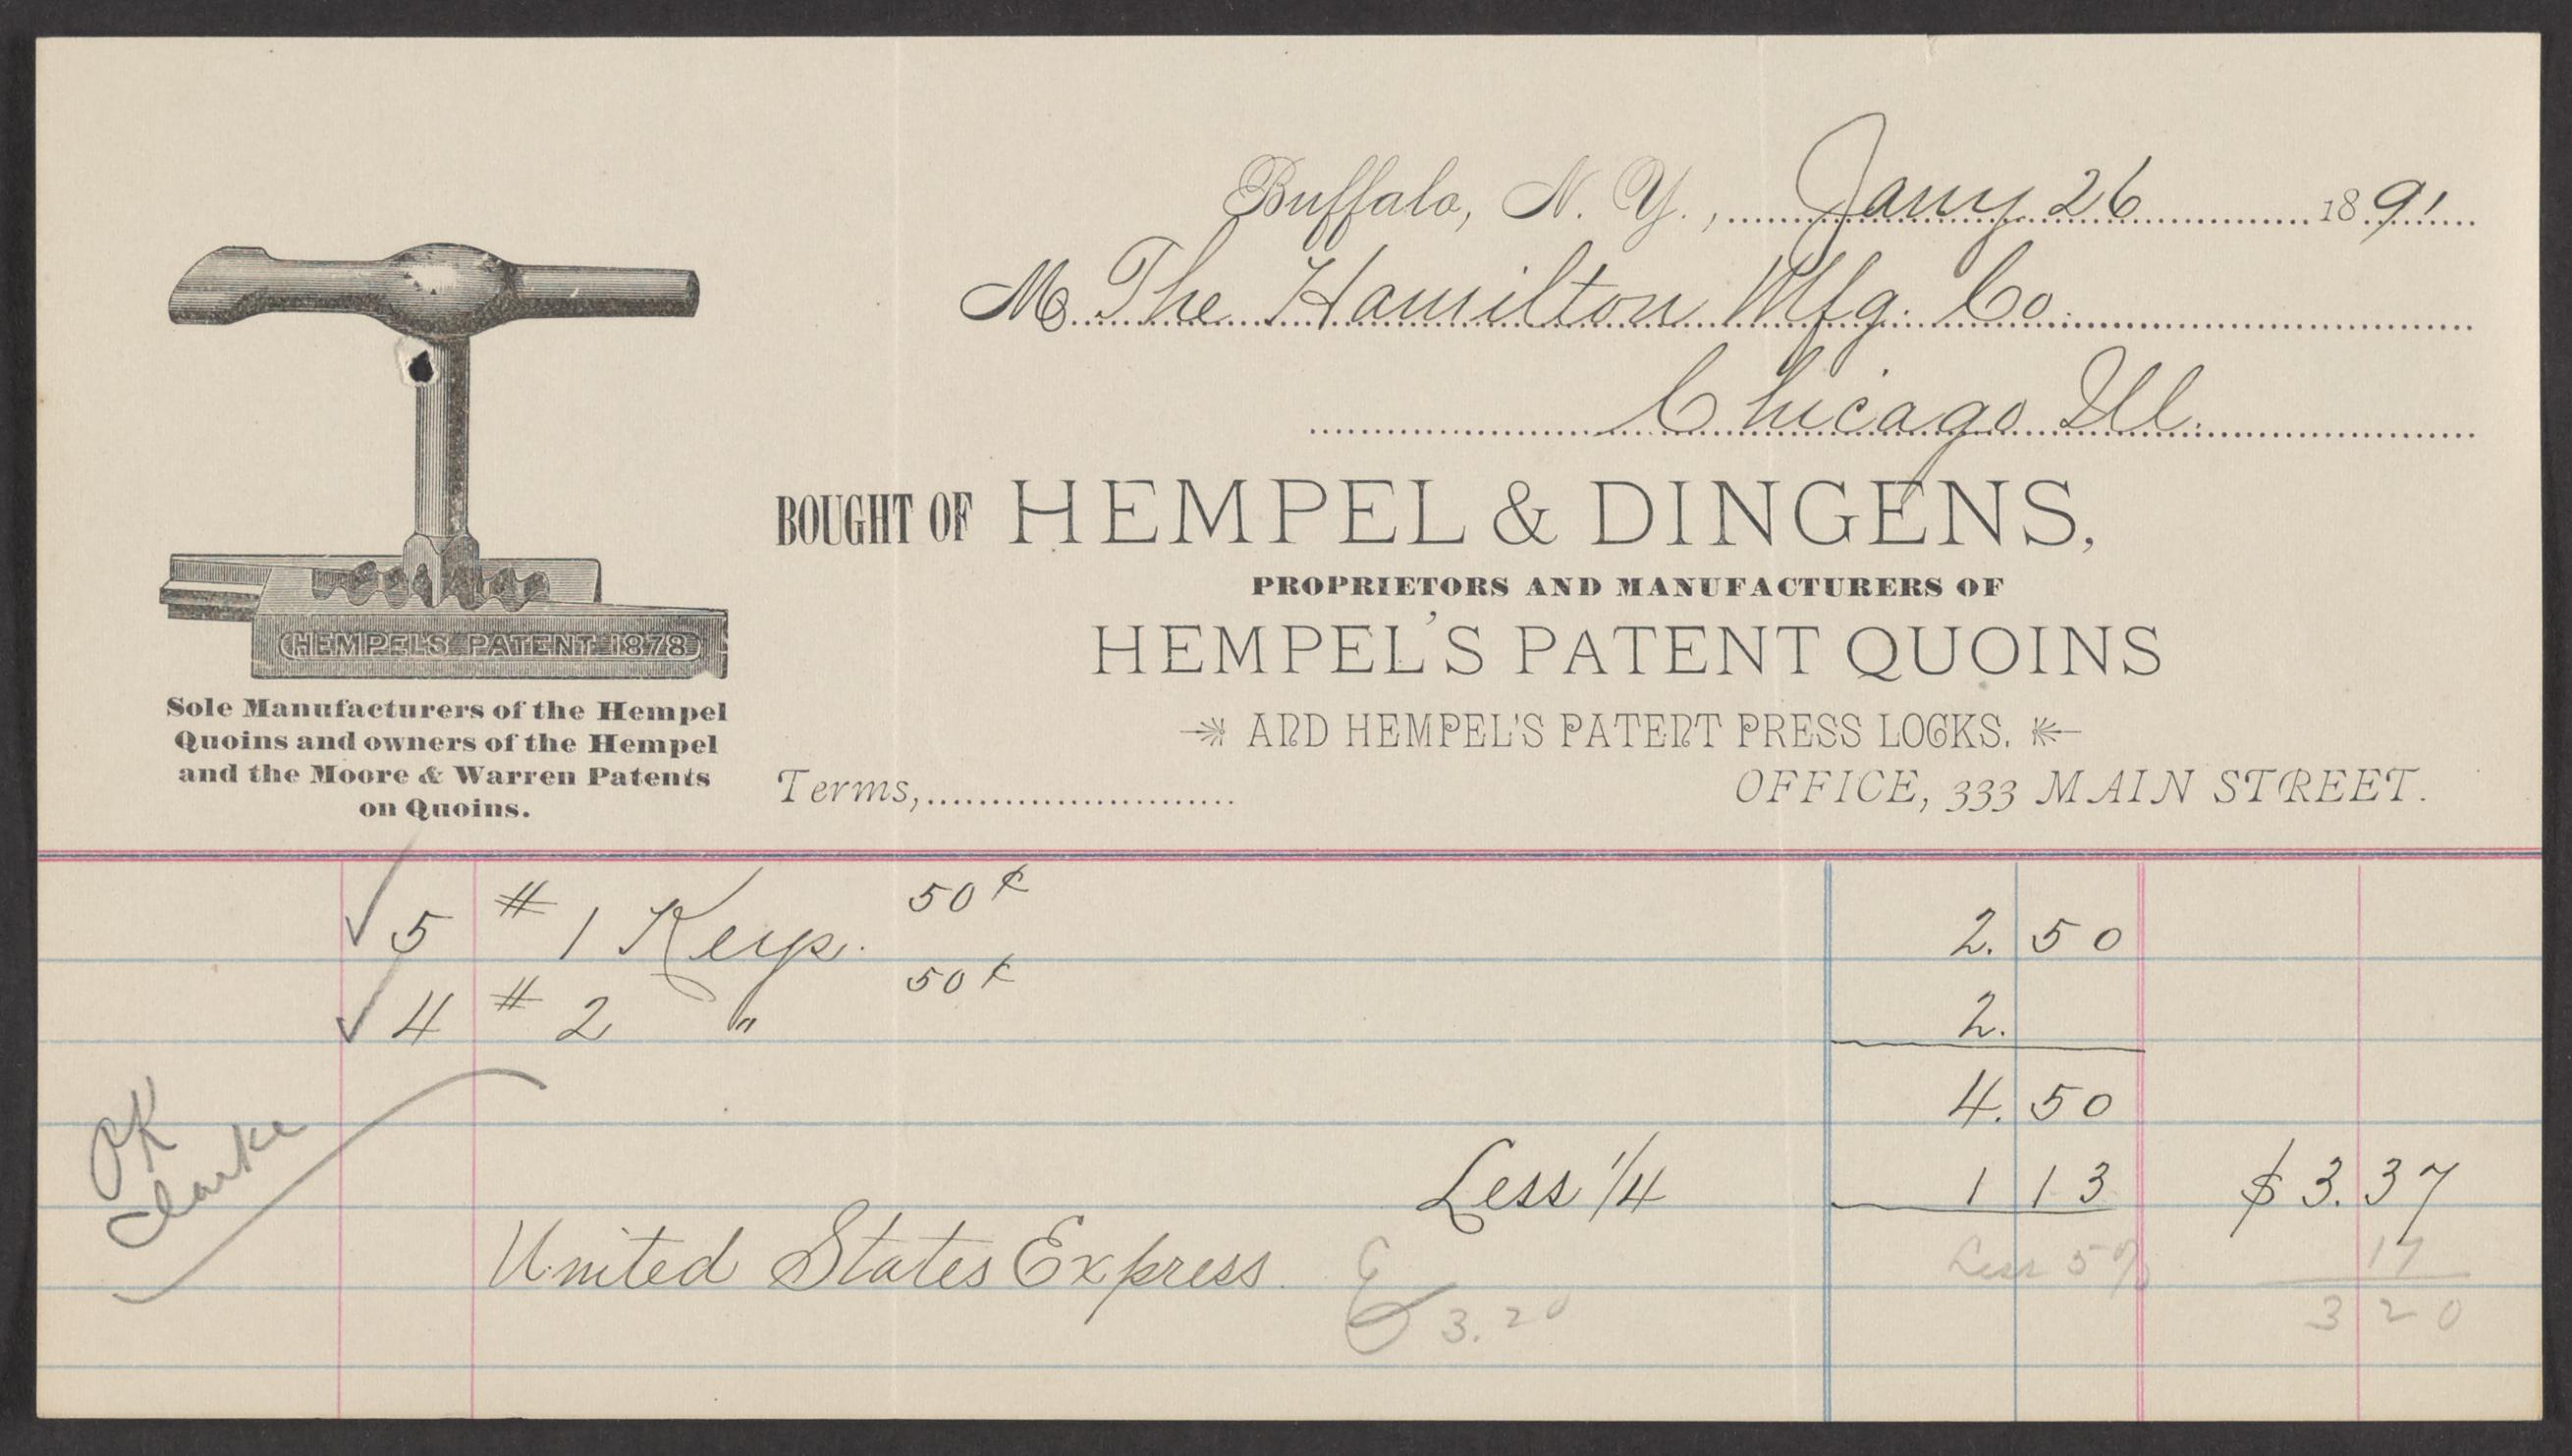 Buffalo, N. Y., Jany 26 1891
M The Hamilton Mfg. Co.
Chicago Ill.
BOUGHT OF HEMPEL & DINGENS,
PROPRIETORS AND MANUFACTURERS OF
HEMPEL'S PATENT QUOINS
AND HEMPEL'S PATENT PRESS LOCKS.
Terms, OFFICE, 333 MAIN STREET.
HEMPEL'S PATENT 1878
Sole Manufacturers of the Hempel
Quoins and owners of the Hempel
and the Moore & Warren Patents
on Quoins.
✓ 5 # 1 Keys. 50¢ 2.50
✓ 4 # 2 " 50¢ 2.
4.50
Less 1/4 1 13 $3.37
OK
Clarke
United States Express. Less 5% 17
3.20 3 20